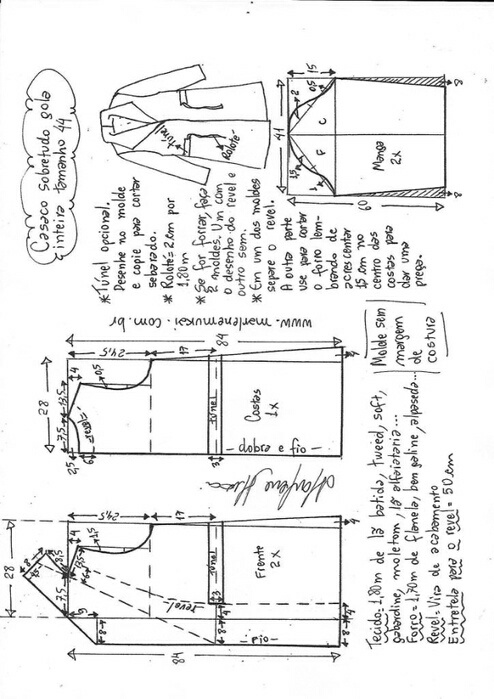 Casaco sobretudo gola
inteira tamanho 44
*Túnel opcional.
Desenhe no molde
e copie para cortar
sebarado.
* Rolotê=2cm por
1,80m
* Se for forrar, faça
2 moldes. Um com
o desenho do revel e
outro sem.
* Em um dos moldes
separe o revel.
A outra parte
use para cortar
o forro lem-
brando de
acrescentar
15 cm no
centro das
costas para
dar uma
prega.
túnel
Rolotê
15
2
0,5
41
F
C
1,5
Manga
2x
60
8
8
www.marlenemukai.com.br
84
24,5
17
28
13,5
4
0,5
7,5
2,5
6
revel
túnel
3
Costas
1x
dobra e fio
4
Marlene Mukai
24,5
17
28
4
1,5
8
8,5
7,5
9
revel
túnel
3
Frente
2x
8
8
4
4
fio
84
Molde sem
margem
de
costura
Tecido=1,80m de lã batida, tweed, soft,
gabardine, moletom, lã alfaiataria...
Forro=1,70m de flanela, bengaline, alpaseda...
Revel=Vira de acabamento
Entretela para o revel=50cm